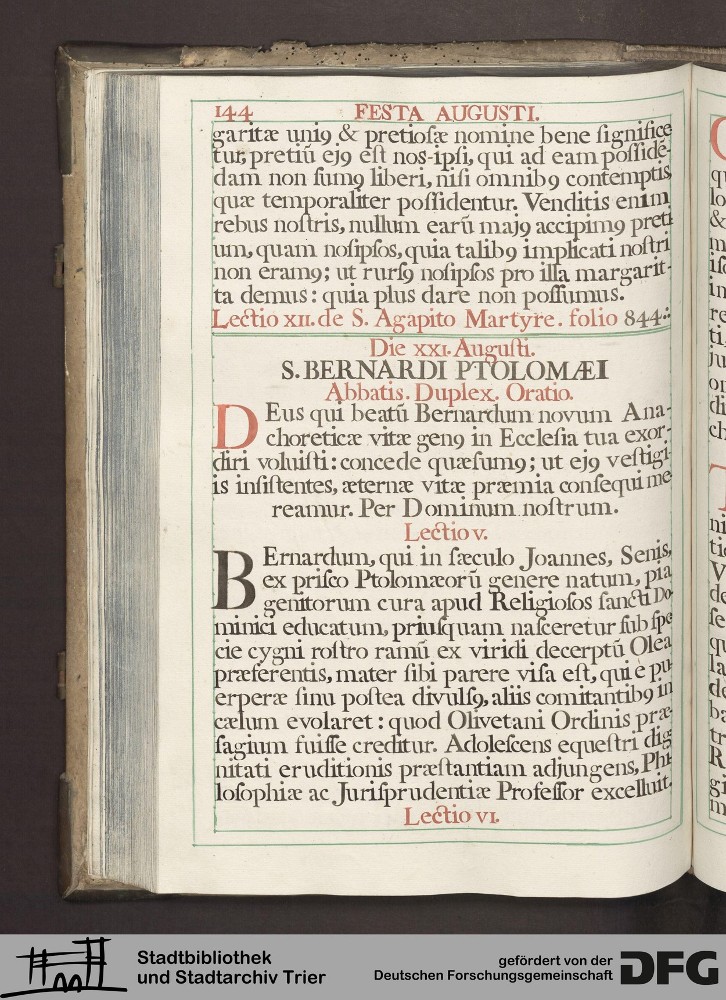 144 FESTA AUGUSTI.
garitæ uniꝰ & pretioſæ nomine bene ſignifice
tur, pretiū ejꝰ eſt nos-ipſi, qui ad eam poſſidē-
dam non ſumꝰ liberi, niſi omnibꝰ contemptis,
quæ temporaliter poſſidentur. Venditis enim
rebus noſtris, nullum earū majꝰ accipimꝰ preti
um, quam noſipſos, quia talibꝰ implicati noſtri
non eramꝰ; ut rurſꝰ noſipſos pro illa margarit-
ta demus: quia plus dare non poſſumus.
Lectio XII. de S. Agapito Martyre. folio 844.:
Die XXI. Auguſti.
S. BERNARDI PTOLOMÆI
Abbatis. Duplex. Oratio.
DEus qui beatū Bernardum novum Ana-
choreticæ vitæ genꝰ in Eccleſia tua exor-
diri voluiſti: concede quæſumꝰ; ut ejꝰ veſtigi-
is inſiſtentes, æternæ vitæ præmia conſequi me
reamur. Per Dominum noſtrum.
Lectio V.
BErnardum, qui in ſæculo Joannes, Senis,
ex priſco Ptolomæorū genere natum, pia
genitorum cura apud Religioſos ſancti Do-
minici educatum, priuſquam naſceretur ſub ſpe
cie cygni roſtro ramū ex viridi decerptū Olea
præferentis, mater ſibi parere viſa eſt, qui è pu-
erperæ ſinu poſtea divulſꝰ, aliis comitantibꝰ in
cælum evolaret: quod Olivetani Ordinis præ-
ſagium fuiſſe creditur. Adoleſcens equeſtri dig
nitati eruditionis præſtantiam adjungens, Phi-
loſophiæ ac Juriſprudentiæ Profeſſor excelluit.
Lectio VI.
Stadtbibliothek
und Stadtarchiv Trier
gefördert von der
Deutschen Forschungsgemeinschaft
DFG